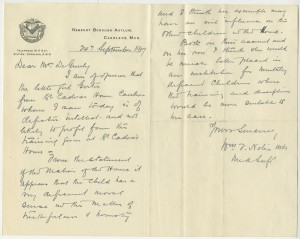 NAREMBURN BOROUGH ASYLUM,
20th September 1907
Dear Mr.
I am of opinion that
the little girl
from St Cadoc's Home Caerleon
whom I saw today is of
defective intellect and not
likely to profit from the
training given at St Cadoc's
Home
From the statement
of the Matron of the Home it
appears that the child has a
very deficient moral
sense in the matter of
truthfulness & honesty
and I think her example may
have an evil influence on the
other children in the Home.
Both on this account and
on her own I think she would
be much better placed in
an institution for mentally
defective children where
the training and discipline
would be more suitable to
her case.
Yours Sincerely
Med Supt